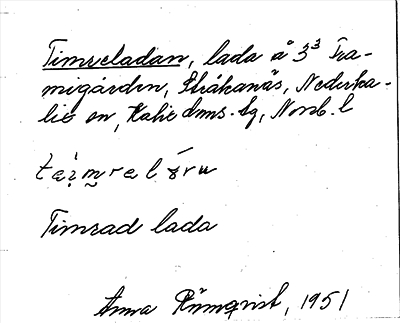 Timreladan, lada å 3³ Fra-
migården, Stråkanäs, Nederka-
lix sn, Kalix dms. tg, Norrb. l
Timrad lada
Anna Rönnqvist, 1951